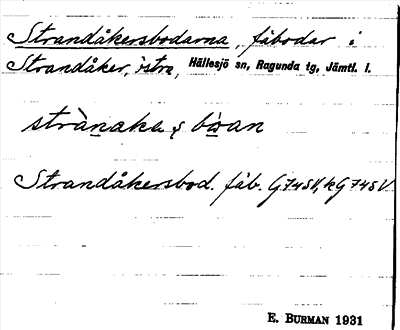 Strandåkersbodarna, fäbodar i
Strandåker, östra, Hällesjö sn, Ragunda tg, Jämtl. l.
strànaka ş bòan
Strandåkersbod. fäb. G74SV, kG74SV
E. BURMAN 1931